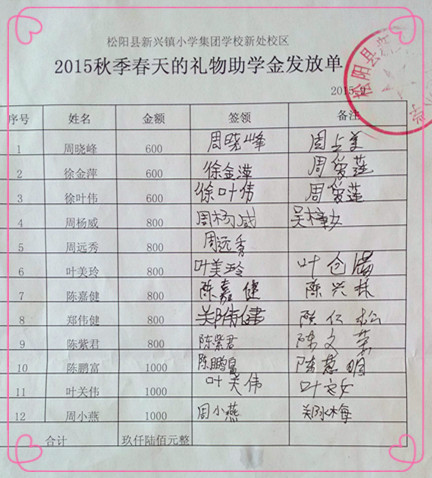 松阳县新兴镇小学集团学校新处校区
2015秋季春天的礼物助学金发放单
序号 姓名 金额 签领 备注
1 周晓峰 600 周晓峰
2 徐金萍 600 徐金萍 周爱莲
3 徐叶伟 600 徐叶伟 周爱莲
4 周杨威 800 周杨威
5 周远秀 800 周远秀
6 叶美玲 800 叶美玲
7 陈嘉健 800 陈嘉健 陈兴林
8 郑伟健 800 郑伟健 陈仁松
9 陈紫君 800 陈紫君 陈文荣
10 陈鹏富 1000 陈鹏富 陈慧明
11 叶关伟 1000 叶关伟
12 周小燕 1000 周小燕 郑冰梅
合计 玖仟陆佰元整